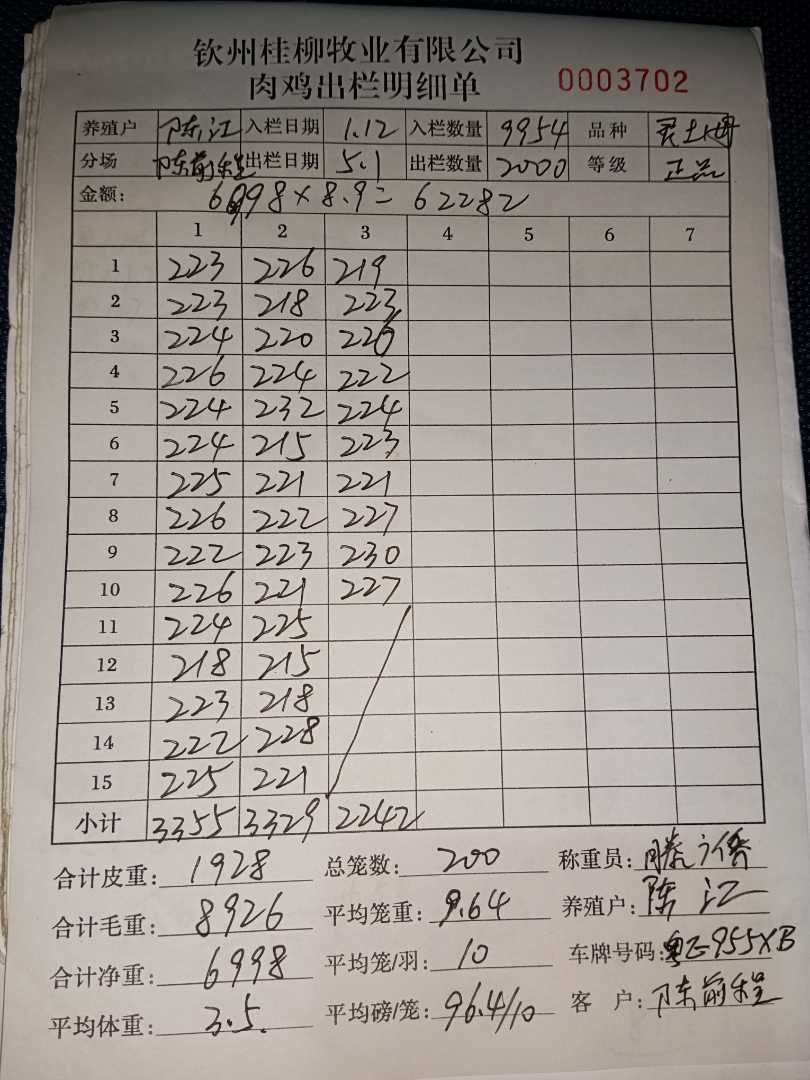 钦州桂柳牧业有限公司
肉鸡出栏明细单 0003702
养殖户 陈江 入栏日期 1.12 入栏数量 9954 品种
分场 陈前程 出栏日期 5.1 出栏数量 2000 等级 正品
金额: 6998×8.9=62282
1 2 3 4 5 6 7
1 223 226 219
2 223 218 223
3 224 220 226
4 226 224 222
5 224 232 224
6 224 215 223
7 225 221 221
8 226 222 227
9 222 223 230
10 226 221 227
11 224 225
12 218 215
13 223 218
14 222 228
15 225 221
小计 3355 3329 2242
合计皮重: 1928 总笼数: 200 称重员:
合计毛重: 8926 平均笼重: 9.64 养殖户: 陈江
合计净重: 6998 平均笼/羽: 10 车牌号码:
平均体重: 3.5. 平均磅/笼: 96.4/10 客户: 陈前程